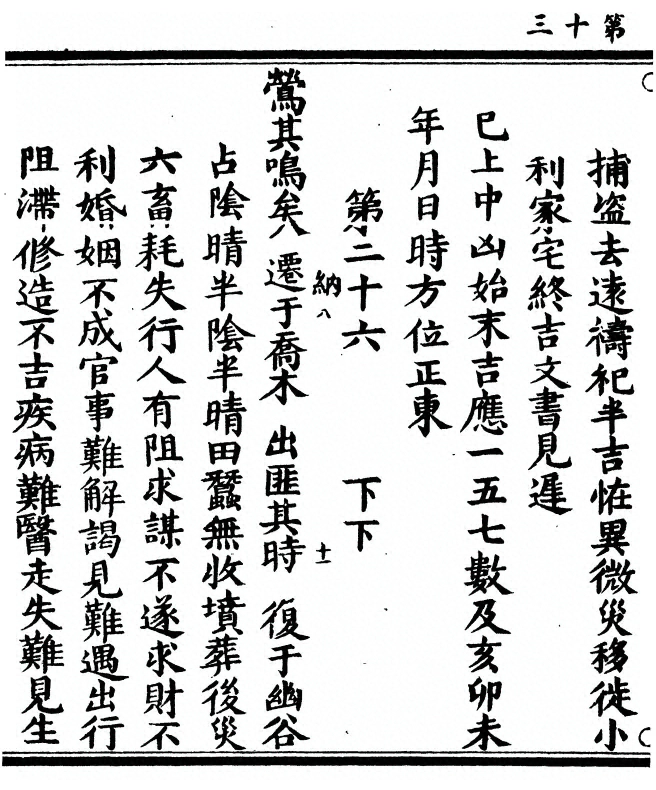 第十三
捕盗去遠禱祀半吉怪異微災移徙小
利家宅終吉文書見遲
巳上中凶始末吉應一五七數及亥卯未
年月日時方位正東
第二十六　下下
納八
鶯其鳴矣　遷于喬木　出匪其時　復于幽谷
十一
占陰晴半陰半晴田蠶無收墳葬後災
六畜耗失行人有阻求謀不遂求財不
利婚姻不成官事難解謁見難遇出行
阻滯修造不吉疾病難醫走失難見生